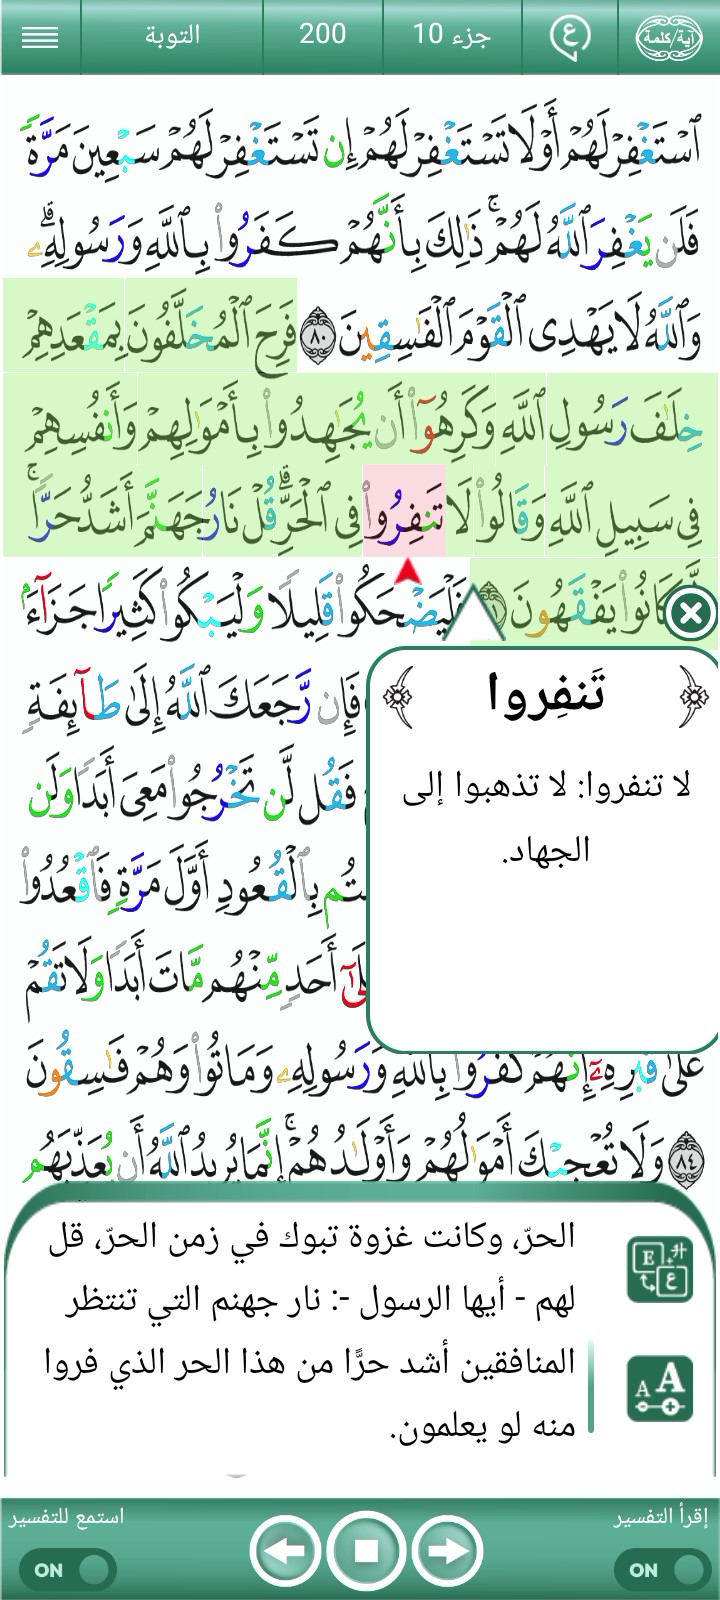 آية/كلمة ع جزء 10 200 التوبة
ٱسۡتَغۡفِرۡ لَهُمۡ أَوۡ لَا تَسۡتَغۡفِرۡ لَهُمۡ إِن تَسۡتَغۡفِرۡ لَهُمۡ سَبۡعِينَ مَرَّةٗ
فَلَن يَغۡفِرَ ٱللَّهُ لَهُمۡۚ ذَٰلِكَ بِأَنَّهُمۡ كَفَرُواْ بِٱللَّهِ وَرَسُولِهِۦۗ
وَٱللَّهُ لَا يَهۡدِي ٱلۡقَوۡمَ ٱلۡفَٰسِقِينَ ٨٠ فَرِحَ ٱلۡمُخَلَّفُونَ بِمَقۡعَدِهِمۡ
خِلَٰفَ رَسُولِ ٱللَّهِ وَكَرِهُوٓاْ أَن يُجَٰهِدُواْ بِأَمۡوَٰلِهِمۡ وَأَنفُسِهِمۡ
فِي سَبِيلِ ٱللَّهِ وَقَالُواْ لَا تَنفِرُواْ فِي ٱلۡحَرِّۗ قُلۡ نَارُ جَهَنَّمَ أَشَدُّ حَرّٗاۚ
كَانُواْ يَفۡقَهُونَ فَلۡيَضۡحَكُواْ قَلِيلٗا وَلۡيَبۡكُواْ كَثِيرٗا جَزَآءَۢ
فَإِن رَّجَعَكَ ٱللَّهُ إِلَىٰ طَآئِفَةٖ
فَقُل لَّن تَخۡرُجُواْ مَعِيَ أَبَدٗا وَلَن
بِٱلۡقُعُودِ أَوَّلَ مَرَّةٖ فَٱقۡعُدُواْ
أَحَدٖ مِّنۡهُم مَّاتَ أَبَدٗا وَلَا تَقُمۡ
عَلَىٰ قَبۡرِهِۦٓۖ إِنَّهُمۡ كَفَرُواْ بِٱللَّهِ وَرَسُولِهِۦ وَمَاتُواْ وَهُمۡ فَٰسِقُونَ
٨٤ وَلَا تُعۡجِبۡكَ أَمۡوَٰلُهُمۡ وَأَوۡلَٰدُهُمۡۚ إِنَّمَا يُرِيدُ ٱللَّهُ أَن يُعَذِّبَهُم
تَنفِروا
لا تنفروا: لا تذهبوا إلى
الجهاد.
الحرّ، وكانت غزوة تبوك في زمن الحرّ، قل
لهم - أيها الرسول -: نار جهنم التي تنتظر
المنافقين أشد حرًّا من هذا الحر الذي فروا
منه لو يعلمون.
إقرأ التفسير استمع للتفسير
ON ON